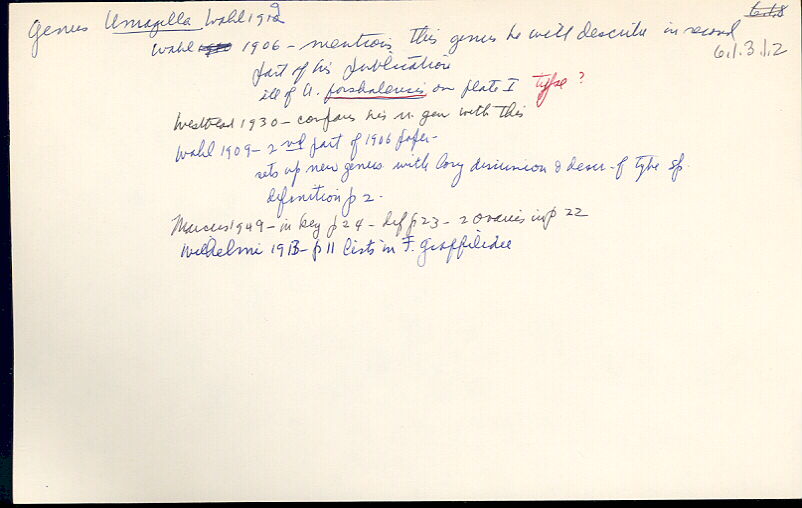 Genus Umagilla Wahl 1909
6.1.8
6.1.3.1.2
Wahl 1906 - mentions this genus he will describe in second
part of his publication
ill of U. forskalensis on plate I type ?
Westblad 1930 - compares his n. gen with this
Wahl 1909 - 2nd part of 1906 paper -
sets up new genus with long discussion & descr. of type sp.
definition p 2 -
Marcus 1949 - in key p 24 - def p 23 - 2 ovaries in p 22
Wilhelmi 1913 - p 11 lists in F. Graffilidae